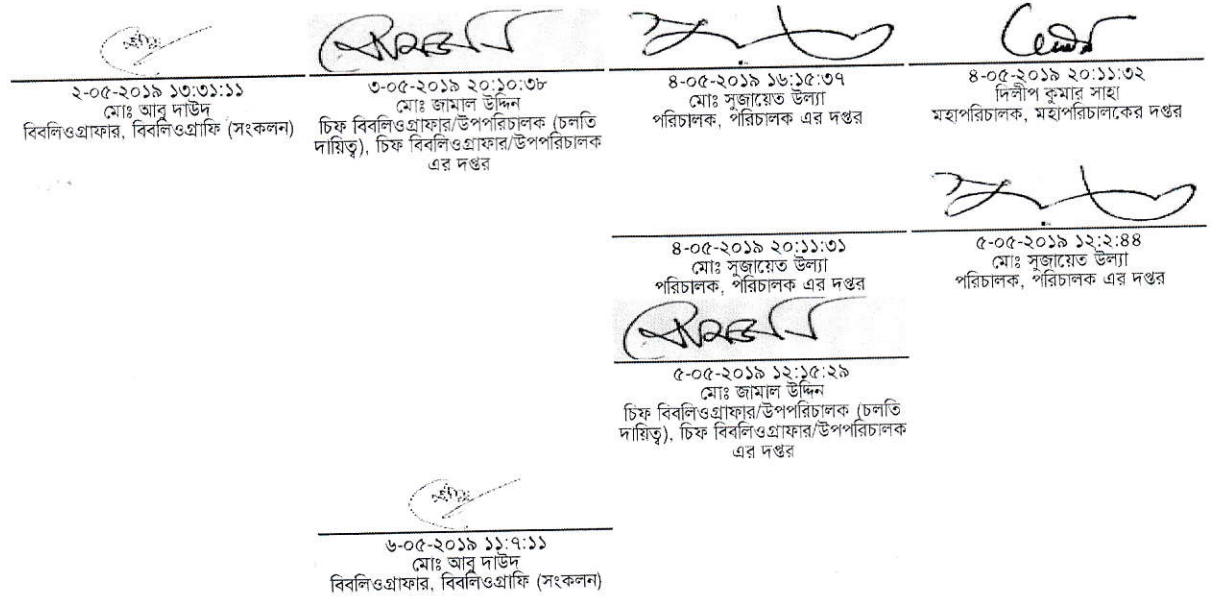 ২-০৫-২০১৯ ১৩:৩১:১১
মোঃ আবু দাউদ
বিবলিওগ্রাফার, বিবলিওগ্রাফি (সংকলন)
৩-০৫-২০১৯ ২০:১০:৩৮
মোঃ জামাল উদ্দিন
চিফ বিবলিওগ্রাফার/উপপরিচালক (চলতি
দায়িত্ব), চিফ বিবলিওগ্রাফার/উপপরিচালক
এর দপ্তর
৪-০৫-২০১৯ ১৬:১৫:৩৭
মোঃ সুজায়েত উল্যা
পরিচালক, পরিচালক এর দপ্তর
৪-০৫-২০১৯ ২০:১১:৩২
দিলীপ কুমার সাহা
মহাপরিচালক, মহাপরিচালকের দপ্তর
৪-০৫-২০১৯ ২০:১১:৩১
মোঃ সুজায়েত উল্যা
পরিচালক, পরিচালক এর দপ্তর
৫-০৫-২০১৯ ১২:২:৪৪
মোঃ সুজায়েত উল্যা
পরিচালক, পরিচালক এর দপ্তর
৫-০৫-২০১৯ ১২:১৫:২৯
মোঃ জামাল উদ্দিন
চিফ বিবলিওগ্রাফার/উপপরিচালক (চলতি
দায়িত্ব), চিফ বিবলিওগ্রাফার/উপপরিচালক
এর দপ্তর
৬-০৫-২০১৯ ১১:৭:১১
মোঃ আবু দাউদ
বিবলিওগ্রাফার, বিবলিওগ্রাফি (সংকলন)